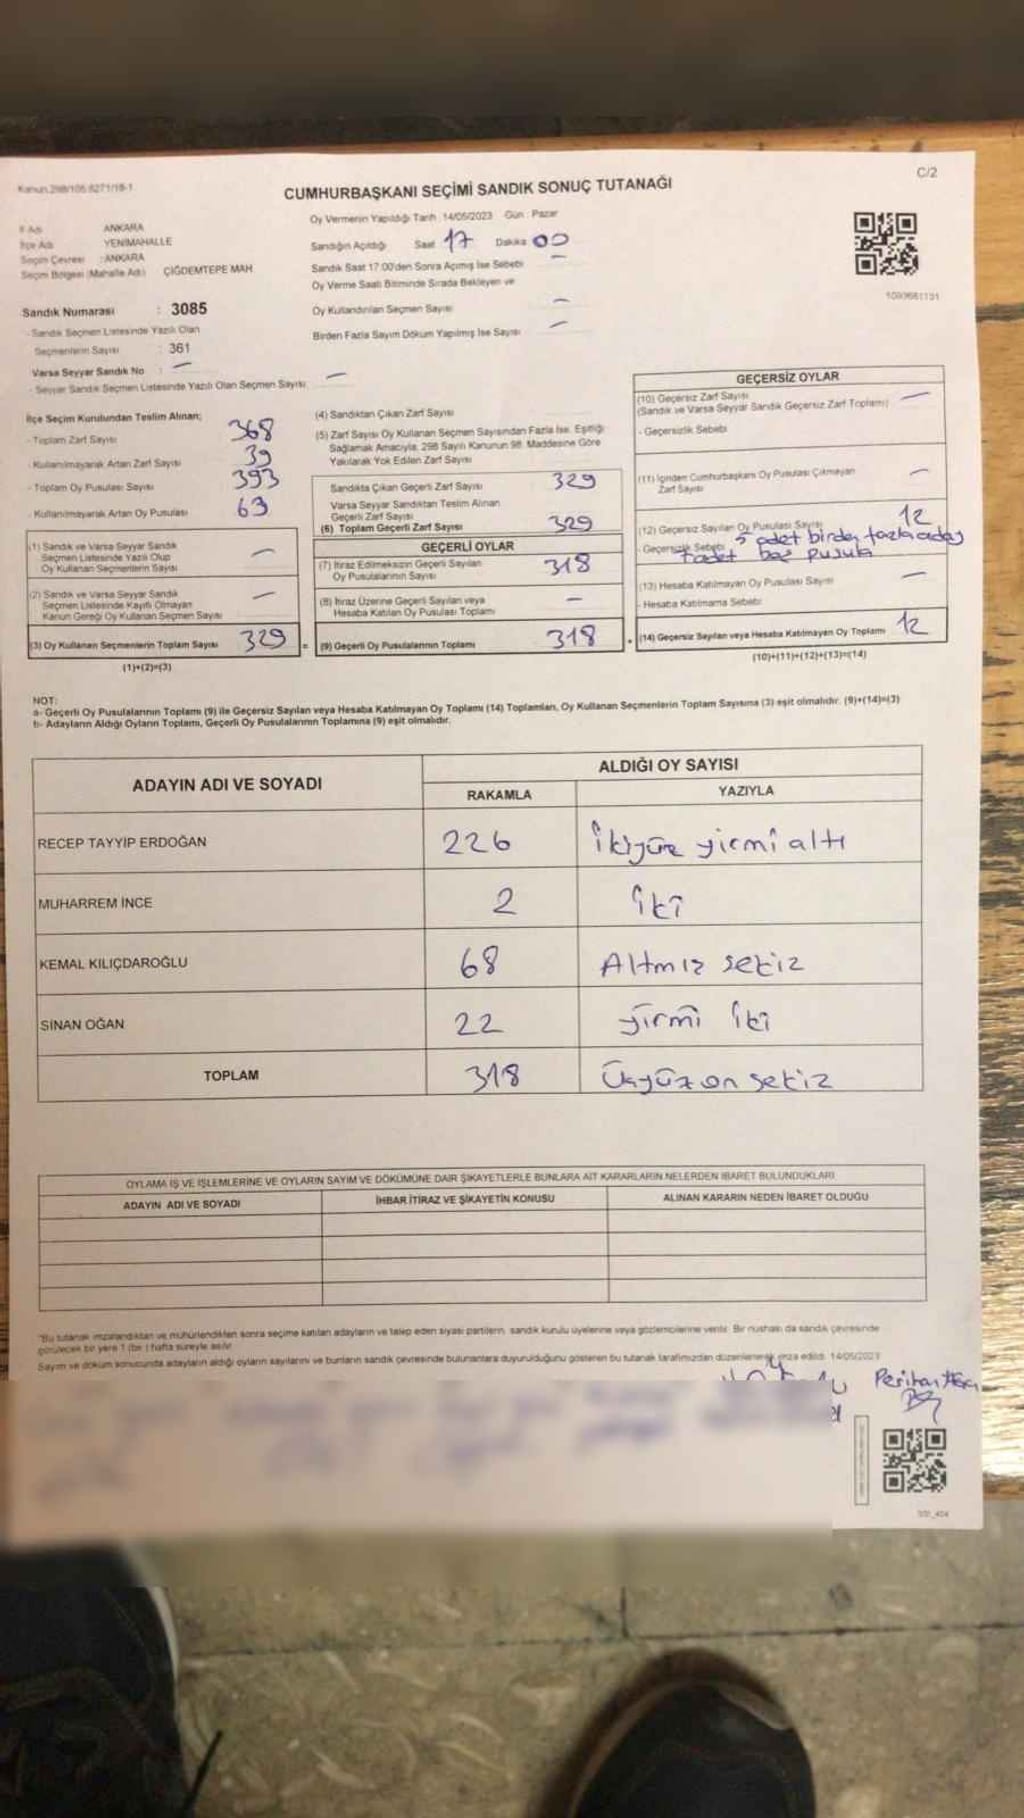 Kanun:298/105 6271/18-1
C/2
CUMHURBAŞKANI SEÇİMİ SANDIK SONUÇ TUTANAĞI
İl Adı ANKARA
İlçe Adı YENİMAHALLE
Seçim Çevresi : ANKARA
Seçim Bölgesi (Mahalle Adı) ÇİĞDEMTEPE MAH
Oy Vermenin Yapıldığı Tarih : 14/05/2023 Gün : Pazar
Sandığın Açıldığı Saat 17 Dakika 00
Sandık Saat 17:00'den Sonra Açımış İse Sebebi —
Oy Verme Saati Bitiminde Sırada Bekleyen ve
Oy Kullandırılan Seçmen Sayısı —
Birden Fazla Sayım Döküm Yapılmış İse Sayısı —
Sandık Numarası : 3085
- Sandık Seçmen Listesinde Yazılı Olan
Seçmenlerin Sayısı : 361
Varsa Seyyar Sandık No : —
- Seyyar Sandık Seçmen Listesinde Yazılı Olan Seçmen Sayısı —
İlçe Seçim Kurulundan Teslim Alınan;
- Toplam Zarf Sayısı 368
- Kullanılmayarak Artan Zarf Sayısı 39
- Toplam Oy Pusulası Sayısı 393
- Kullanılmayarak Artan Oy Pusulası 63
(1) Sandık ve Varsa Seyyar Sandık
Seçmen Listesinde Yazılı Olup
Oy Kullanan Seçmenlerin Sayısı —
(2) Sandık ve Varsa Seyyar Sandık
Seçmen Listesinde Kayıtlı Olmayan
Kanun Gereği Oy Kullanan Seçmen Sayısı —
(3) Oy Kullanan Seçmenlerin Toplam Sayısı 329 =
(1)+(2)=(3)
(4) Sandıktan Çıkan Zarf Sayısı
(5) Zarf Sayısı Oy Kullanan Seçmen Sayısından Fazla İse, Eşitliği
Sağlamak Amacıyla, 298 Sayılı Kanunun 98. Maddesine Göre
Yakılarak Yok Edilen Zarf Sayısı
Sandıkta Çıkan Geçerli Zarf Sayısı 329
Varsa Seyyar Sandıktan Teslim Alınan
Geçerli Zarf Sayısı
(6) Toplam Geçerli Zarf Sayısı 329
GEÇERLİ OYLAR
(7) İtiraz Edilmeksizin Geçerli Sayılan
Oy Pusulalarının Sayısı 318
(8) İtiraz Üzerine Geçerli Sayılan veya
Hesaba Katılan Oy Pusulası Toplamı —
(9) Geçerli Oy Pusulalarının Toplamı 318 +
1093661131
GEÇERSİZ OYLAR
(10) Geçersiz Zarf Sayısı
(Sandık ve Varsa Seyyar Sandık Geçersiz Zarf Toplamı) —
- Geçersizlik Sebebi
(11) İçinden Cumhurbaşkanı Oy Pusulası Çıkmayan
Zarf Sayısı —
(12) Geçersiz Sayılan Oy Pusulası Sayısı 12
- Geçersizlik Sebebi 5 adet birden fazla aday
7 adet boş pusula
(13) Hesaba Katılmayan Oy Pusulası Sayısı —
- Hesaba Katılmama Sebebi
(14) Geçersiz Sayılan veya Hesaba Katılmayan Oy Toplamı 12
(10)+(11)+(12)+(13)=(14)
NOT:
a- Geçerli Oy Pusulalarının Toplamı (9) ile Geçersiz Sayılan veya Hesaba Katılmayan Oy Toplamı (14) Toplamları, Oy Kullanan Seçmenlerin Toplam Sayısına (3) eşit olmalıdır. (9)+(14)=(3)
b- Adayların Aldığı Oyların Toplamı, Geçerli Oy Pusulalarının Toplamına (9) eşit olmalıdır.
ADAYIN ADI VE SOYADI
ALDIĞI OY SAYISI
RAKAMLA YAZIYLA
RECEP TAYYİP ERDOĞAN 226 İkiyüz yirmi altı
MUHARREM İNCE 2 iki
KEMAL KILIÇDAROĞLU 68 Altmız sekiz
SİNAN OĞAN 22 yirmi iki
TOPLAM 318 Üçyüz on sekiz
OYLAMA İŞ VE İŞLEMLERİNE VE OYLARIN SAYIM VE DÖKÜMÜNE DAİR ŞİKAYETLERLE BUNLARA AİT KARARLARIN NELERDEN İBARET BULUNDUKLARI
ADAYIN ADI VE SOYADI İHBAR İTİRAZ VE ŞİKAYETİN KONUSU ALINAN KARARIN NEDEN İBARET OLDUĞU
"Bu tutanak imzalandıktan ve mühürlendikten sonra seçime katılan adayların ve talep eden siyasi partilerin, sandık kurulu üyelerine veya gözlemcilerine verilir. Bir nüshası da sandık çevresinde
görülecek bir yere 1 (bir ) hafta süreyle asılır.
Sayım ve döküm sonucunda adayların aldığı oyların sayılarını ve bunların sandık çevresinde bulunanlara duyurulduğunu gösteren bu tutanak tarafımızdan düzenlenerek imza edildi. 14/05/2023
Perihan